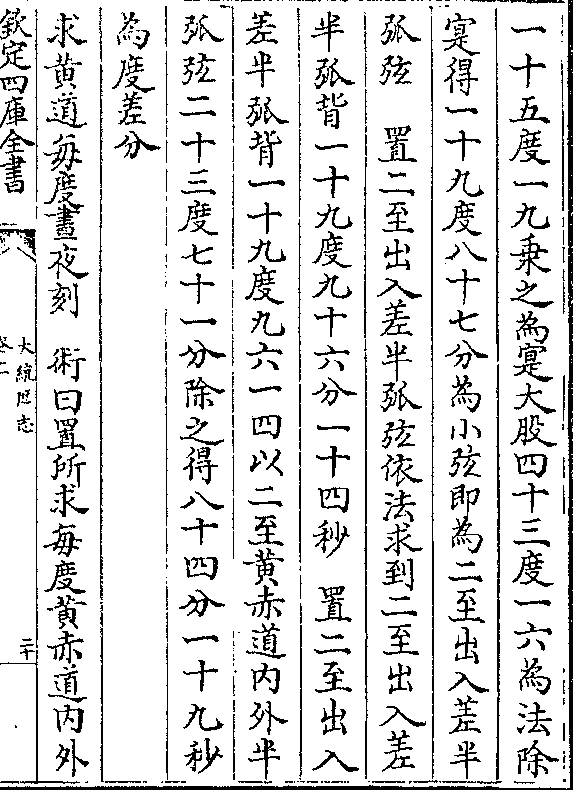 一十五度一九乗之為寔大股四十三度一六為法除
寔得一十九度八十七分為小弦即為二至出入差半
弧弦　置二至出入差半弧弦依法求到二至出入差
半弧背一十九度九十六分一十四秒　置二至出入
差半弧背一十九度九六一四以二至黄赤道内外半
弧弦二十三度七十一分除之得八十四分一十九秒
為度差分
求黄道每度晝夜刻　術曰置所求每度黄赤道内外
欽定四庫全書
大統厯志
卷二
二十